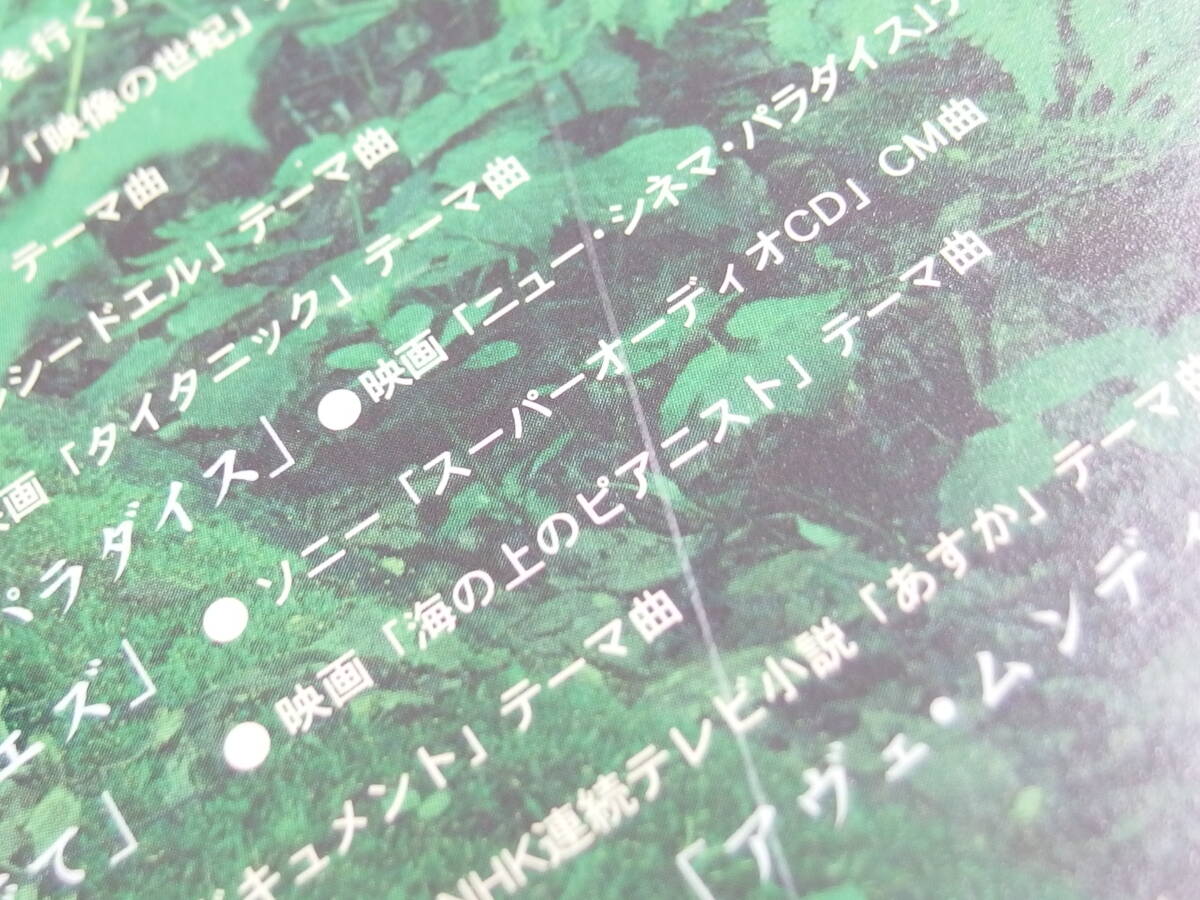 を行く」
「映像の世紀」
テーマ曲
シードエル」テーマ曲
画「タイタニック」テーマ曲
パラダイス」●映画「ニュー・シネマ・パラダイス」
ェズ」●ソニー「スーパーオーディオCD」CM曲
●映画「海の上のピアニスト」テーマ曲
て」
キュメント」テーマ曲
NHK連続テレビ小説「あすか」テーマ曲
「アヴェ・ムンディ